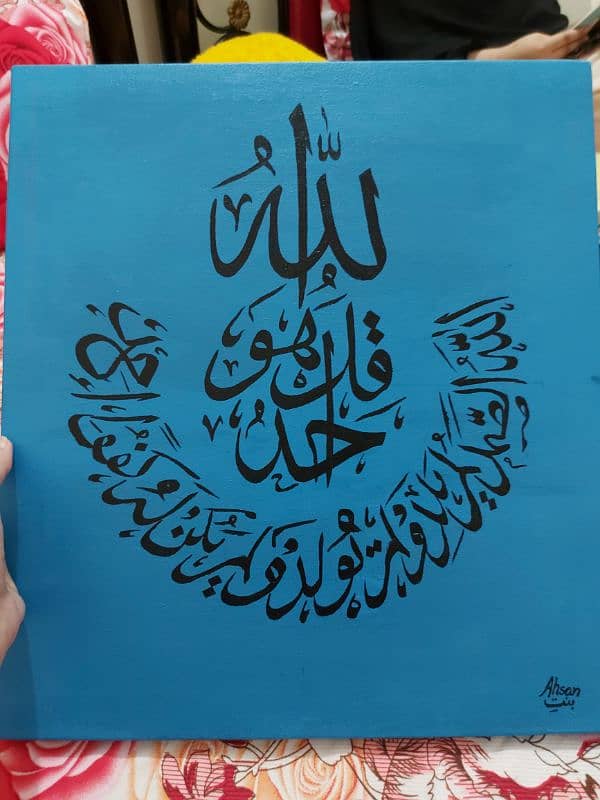 قل هو
اللهُ
احدٌ
الله الصمد لم يلد ولم يولد ولم يكن له كفوا احد
Ahsan
بنتِ